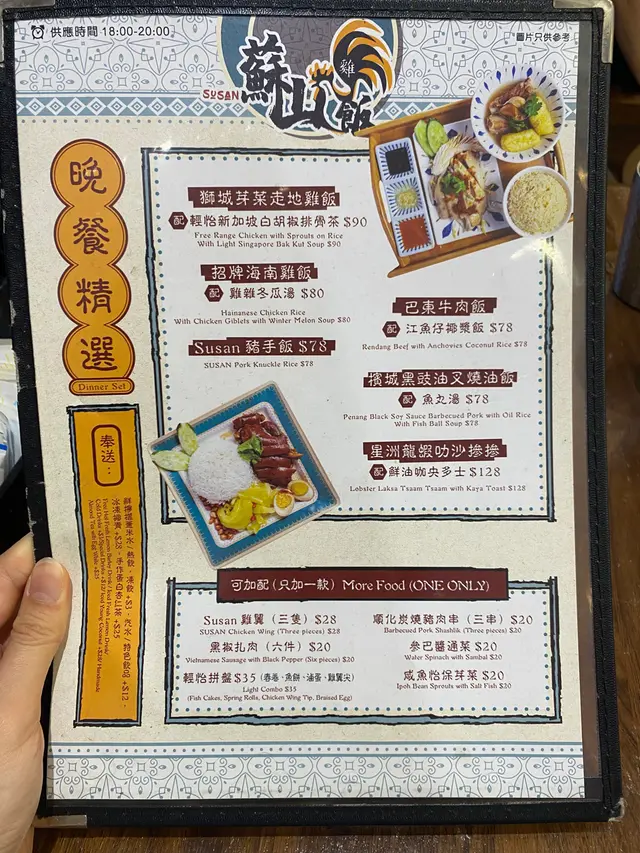 供應時間 18:00-20:00
圖片只供參考
SUSAN
蘇山雞飯
晚餐精選
Dinner Set
獅城芽菜走地雞飯
配 輕怡新加坡白胡椒排骨茶 $90
Free Range Chicken with Sprouts on Rice
With Light Singapore Bak Kut Soup $90
招牌海南雞飯
配 雞雜冬瓜湯 $80
Hainanese Chicken Rice
With Chicken Giblets with Winter Melon Soup $80
Susan 豬手飯 $78
SUSAN Pork Knuckle Rice $78
巴東牛肉飯
配 江魚仔椰漿飯 $78
Rendang Beef with Anchovies Coconut Rice $78
檳城黑豉油叉燒油飯
配 魚丸湯 $78
Penang Black Soy Sauce Barbecued Pork with Oil Rice
With Fish Ball Soup $78
星洲龍蝦叻沙摻摻
配 鮮油咖央多士 $128
Lobster Laksa Tsaam Tsaam with Kaya Toast $128
奉送：
鮮檸檬薏米水 / 熱飲，凍飲 +$3，汽水 / 特色飲品 +$12，
冰凍椰青 +$28，手作蛋白杏仁茶 +$25
Almond Tea with Egg White +$25
可加配 (只加一款) More Food (ONE ONLY)
Susan 雞翼 (三隻) $28
SUSAN Chicken Wing (Three pieces) $28
黑椒扎肉 (六件) $20
Vietnamese Sausage with Black Pepper (Six pieces) $20
輕怡拼盤$35 (春卷、魚餅、滷蛋、雞翼尖)
Light Combo $35
(Fish Cakes, Spring Rolls, Chicken Wing Tip, Braised Egg)
順化炭燒豬肉串 (三串) $20
Barbecued Pork Shashlik (Three pieces) $20
參巴醬通菜 $20
Water Spinach with Sambal $20
咸魚怡保芽菜 $20
Ipoh Bean Sprouts with Salt Fish $20